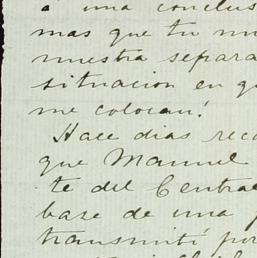 á una conclus
mas que tu
nuestra separa
situacion en q
me colocan!
Hace dias rec
que Manuel
te del Centra
base de una
transmití por